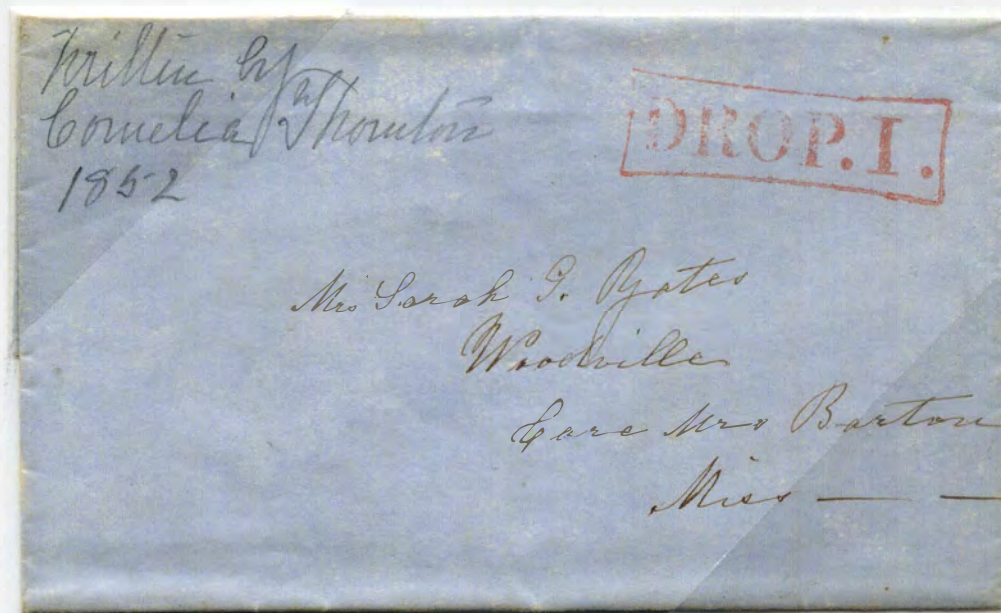 Written by
Cornelia Thornton
1852
DROP.I.
Mrs Sarah G. Yates
Woodville
Care Mrs Barton
Miss — —